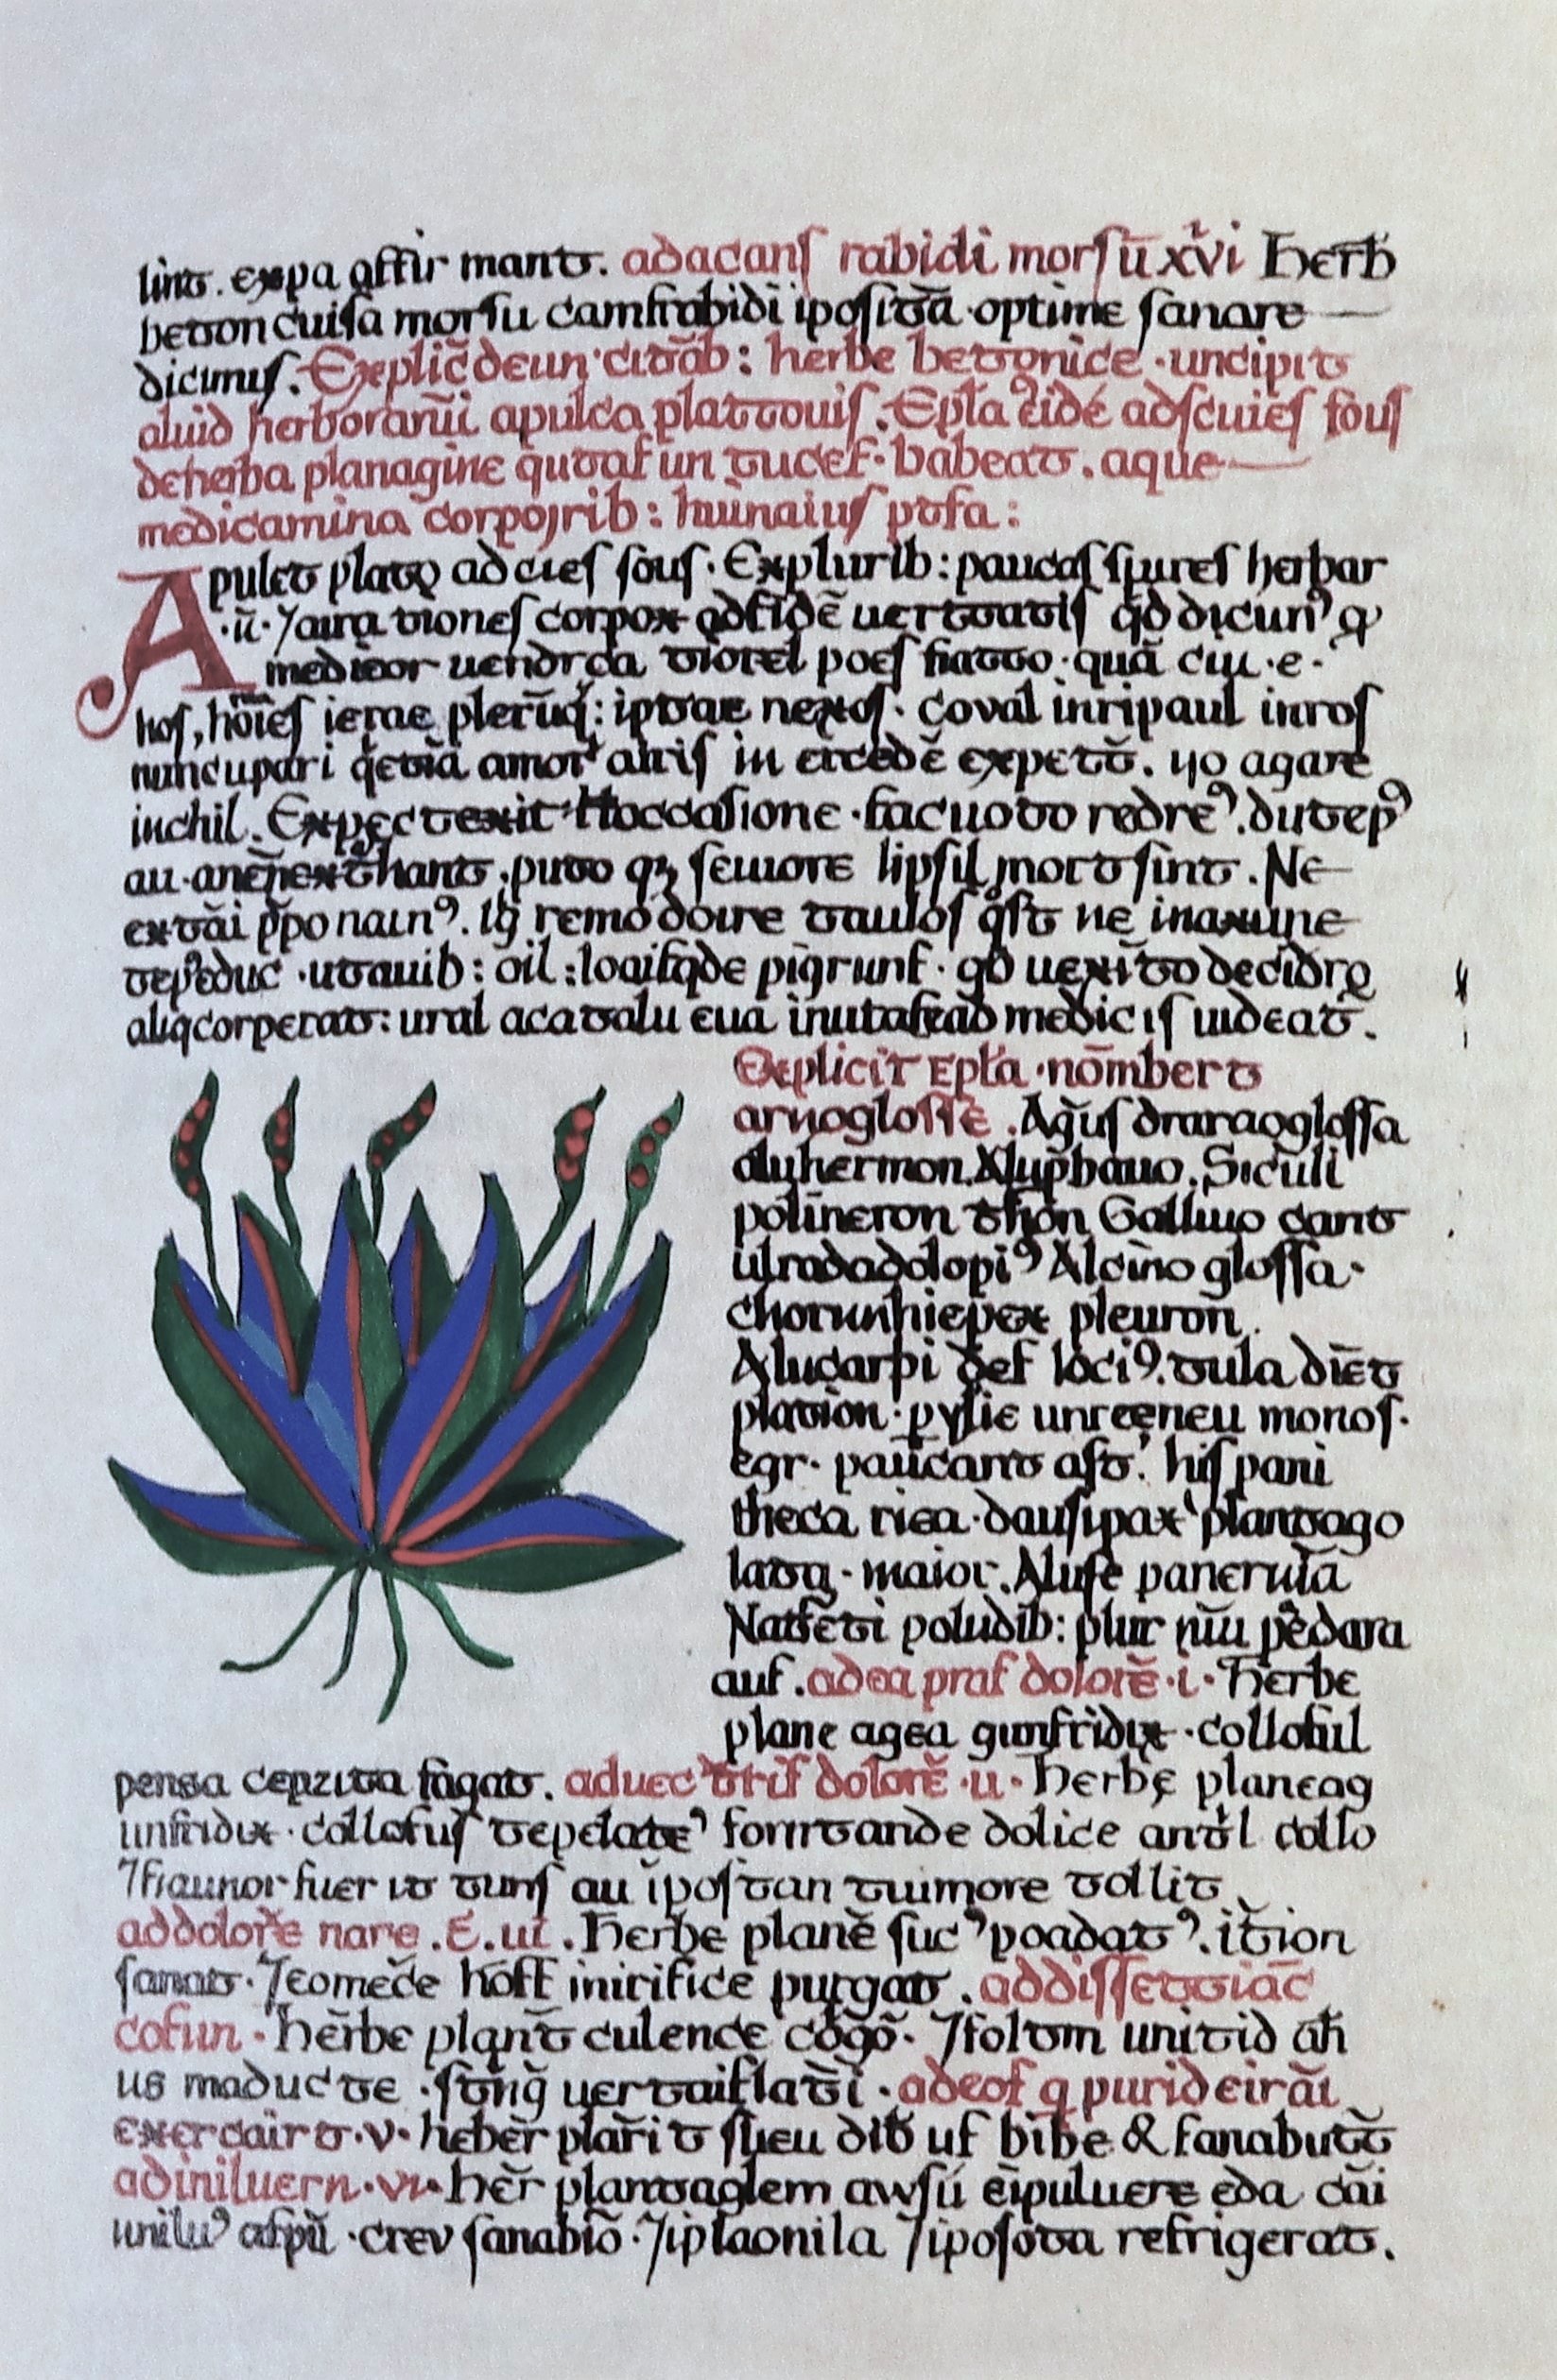 lint. expa affir mant. adacanſ rabidi morſū xvi Herb
beton cuiſa morſu camſrabidi ipoſitā. optime ſanare
dicimuſ. Explic̄ deun. citāb: herbe betonice. uncipit
aluid herborarūi apulca plattouiſ. Epła eide adſcuieſ ſouſ
deherba planagine qutaſ un tuceſ. babeat. aque
medicamina corpojrib: huınaiuſ pofa:
Apulet plato ad cieſ ſouſ. Explurib: paucaſ ſpureſ herbar
.ū. ⁊aira tioneſ corpox qdfidē uertuatiſ qd dicun⁹ q
medicor uendrca tiotel poeſ fiatto. quā cui. e.
hoſ, hōieſ ierae plerūq: iptae nexoſ. coval inripaul inroſ
nuncupari qetiā amor aliriſ in ercedē expett. yo agare
inchil. Expectexit Hoccaſione. facuoto redre⁹. dutep⁹
au. puto qȝ ſeuiore lipſil mort ſint. Ne
extāi ppo nain⁹. Ig remo doire tauloſ qſt ne inaxune
tep̄educ. utauib: oil: loaiſqde pigrunſ. qd uexīto decidrq
aliqcorperat: ural acatalu eua medic iſ uideat.
Explicit Epła. nōmbert
arnogloſſē. Agūſ draraogloſſa
aluhermon. Alupbauo. Siculi
polineron thōn Gallıuo cant
ulradadolopi⁹ Alcıno gloſſa.
chorunhiepex pleuron.
Alucarpi deſ loci⁹. tula diēt
plation. pyſie unreeneu monoſ.
egr. paucant aſt. hiſpani
theca riea. dauſipax plantago
lata. maior. Aluſe paneruła
Natſeti poludib: plur nīu pedara
auſ. adea praſ dolorē. i. Herbe
plane agea gunfridix. colloſul
penſa fagat. aduec triſ dolorē. ii. Herbe planeag
unfridix. colloſuſ tepelate⁹ forırtande dolice antl collo
⁊fiaunor fuer it tunſ au ipoſtan tuımore tollit
addolorē nare. E. iii. Herbe planē ſuc⁹ poadat⁹. ition
ſanat. ⁊eomeče hoſſ inirifice purgat. addiſſettiac
coſun. hērbe plant culence cōgō. ⁊ſoltm unitid ah
us maductte. uertaiflatī. adeoſ q purideirāi
exercairt. v. hebēr plarit ſueu dit uſ bibe & fanabutt
adiniluern. vi. hēr plantaglem awſú eīpuluere eda cāi
unilu⁹ aſpū. crev ſanabıō. ⁊iplaonila ⁊ipoſota refrigerat.